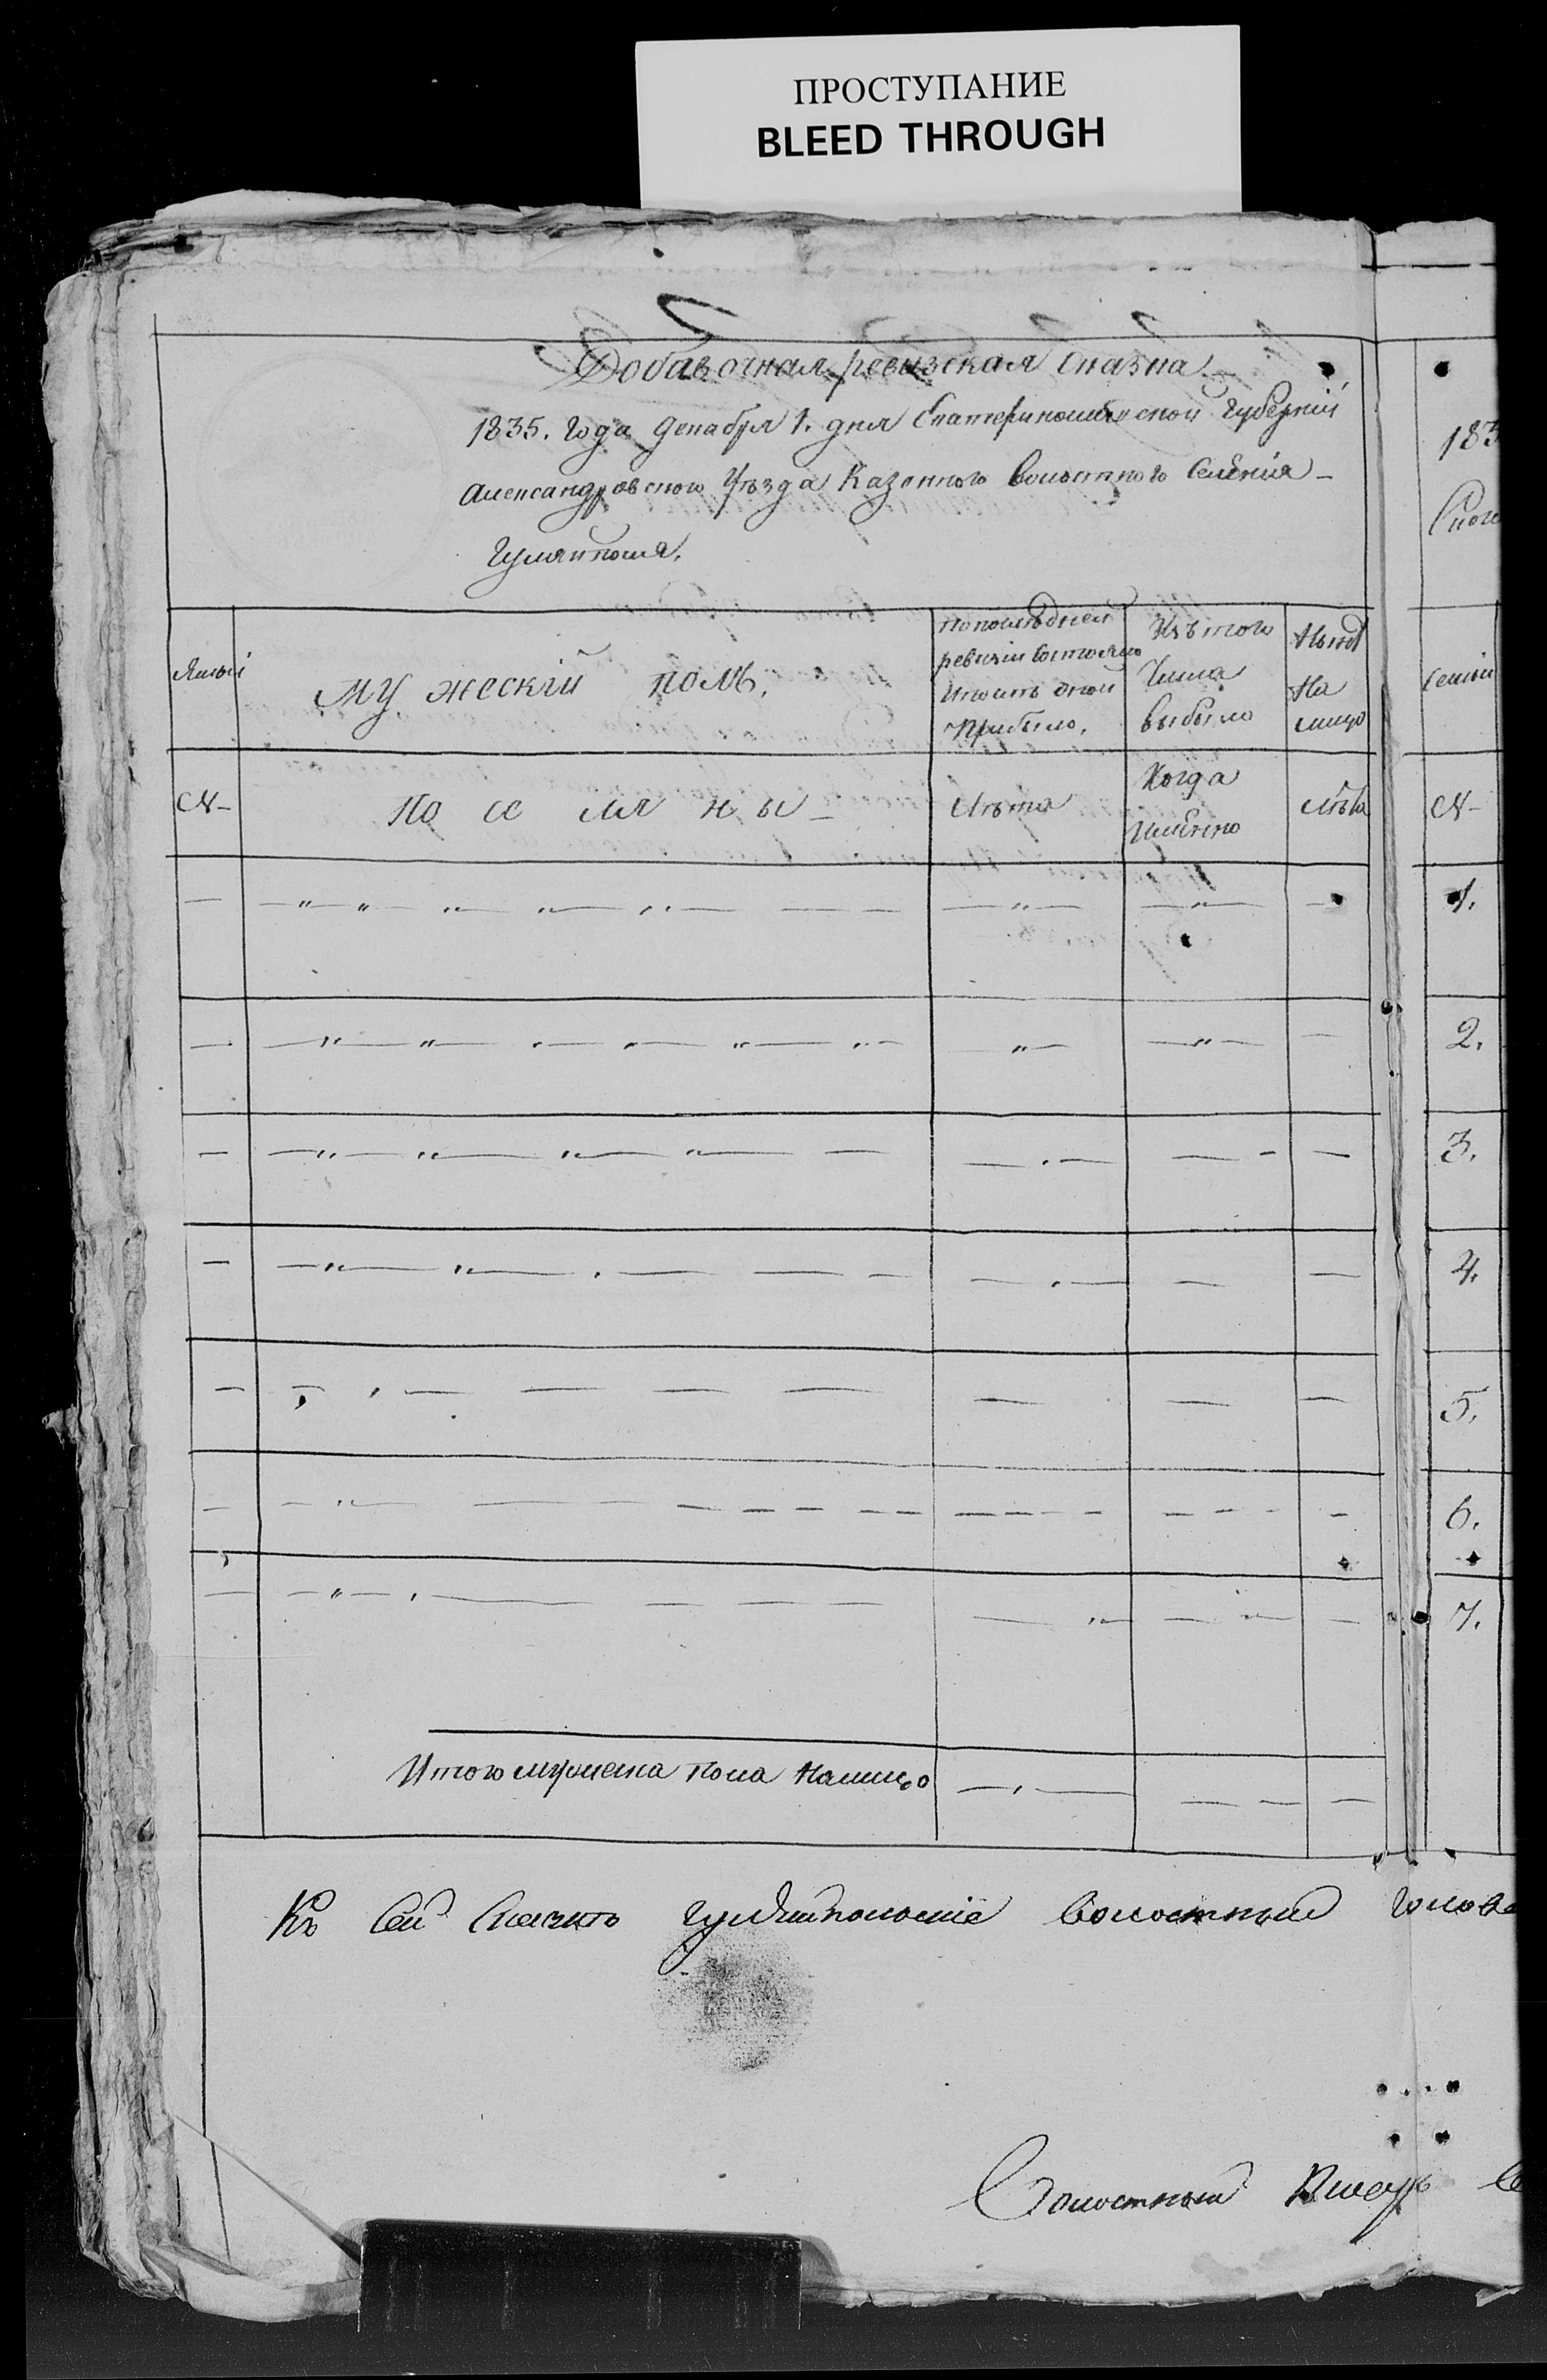 ПРОСТУПАНИЕ
BLEED THROUGH
Добавочная ревизская сказка
1835. Года Декабря 1. дня Екатеринославской Губерніи
Александровского Уѣзда Казенного Волостного Селенія
Гуляйполя.
183
мужескій полъ.
По последней
ревизіи состояло
и после оной
Прибыло.
Изъ того
Числа
выбыло
Нынѣ
На
лицо
Семьи
№
Поселяны
Лѣта
Когда
Именно
Лѣта
№
1.
2.
3.
4.
5.
6.
7.
Итого мужеска пола Налицо
Къ сей Сказкѣ Гуляйпольскіе волостный Голова
Волостный Писарь